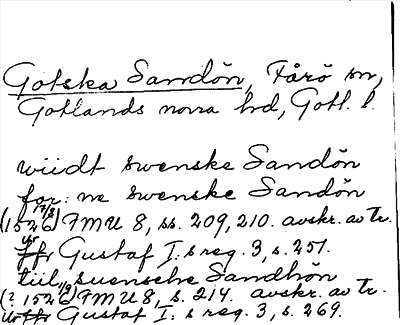 Gotska Sandön, Fårö sn,
Gotlands norra hd, Gotl. l.
wiidt swenske Sandön
for: ne swenske Sandön
(1526 17/8) FMU 8, ss. 209, 210. avskr. av Tr.
ur Gustaf I:s reg. 3, s. 251.
tiil suensche Sandhön
(? 1526 1/9) FMU 8, s. 214. avskr. av Tr.
ur Gustaf I:s reg. 3, s. 269.